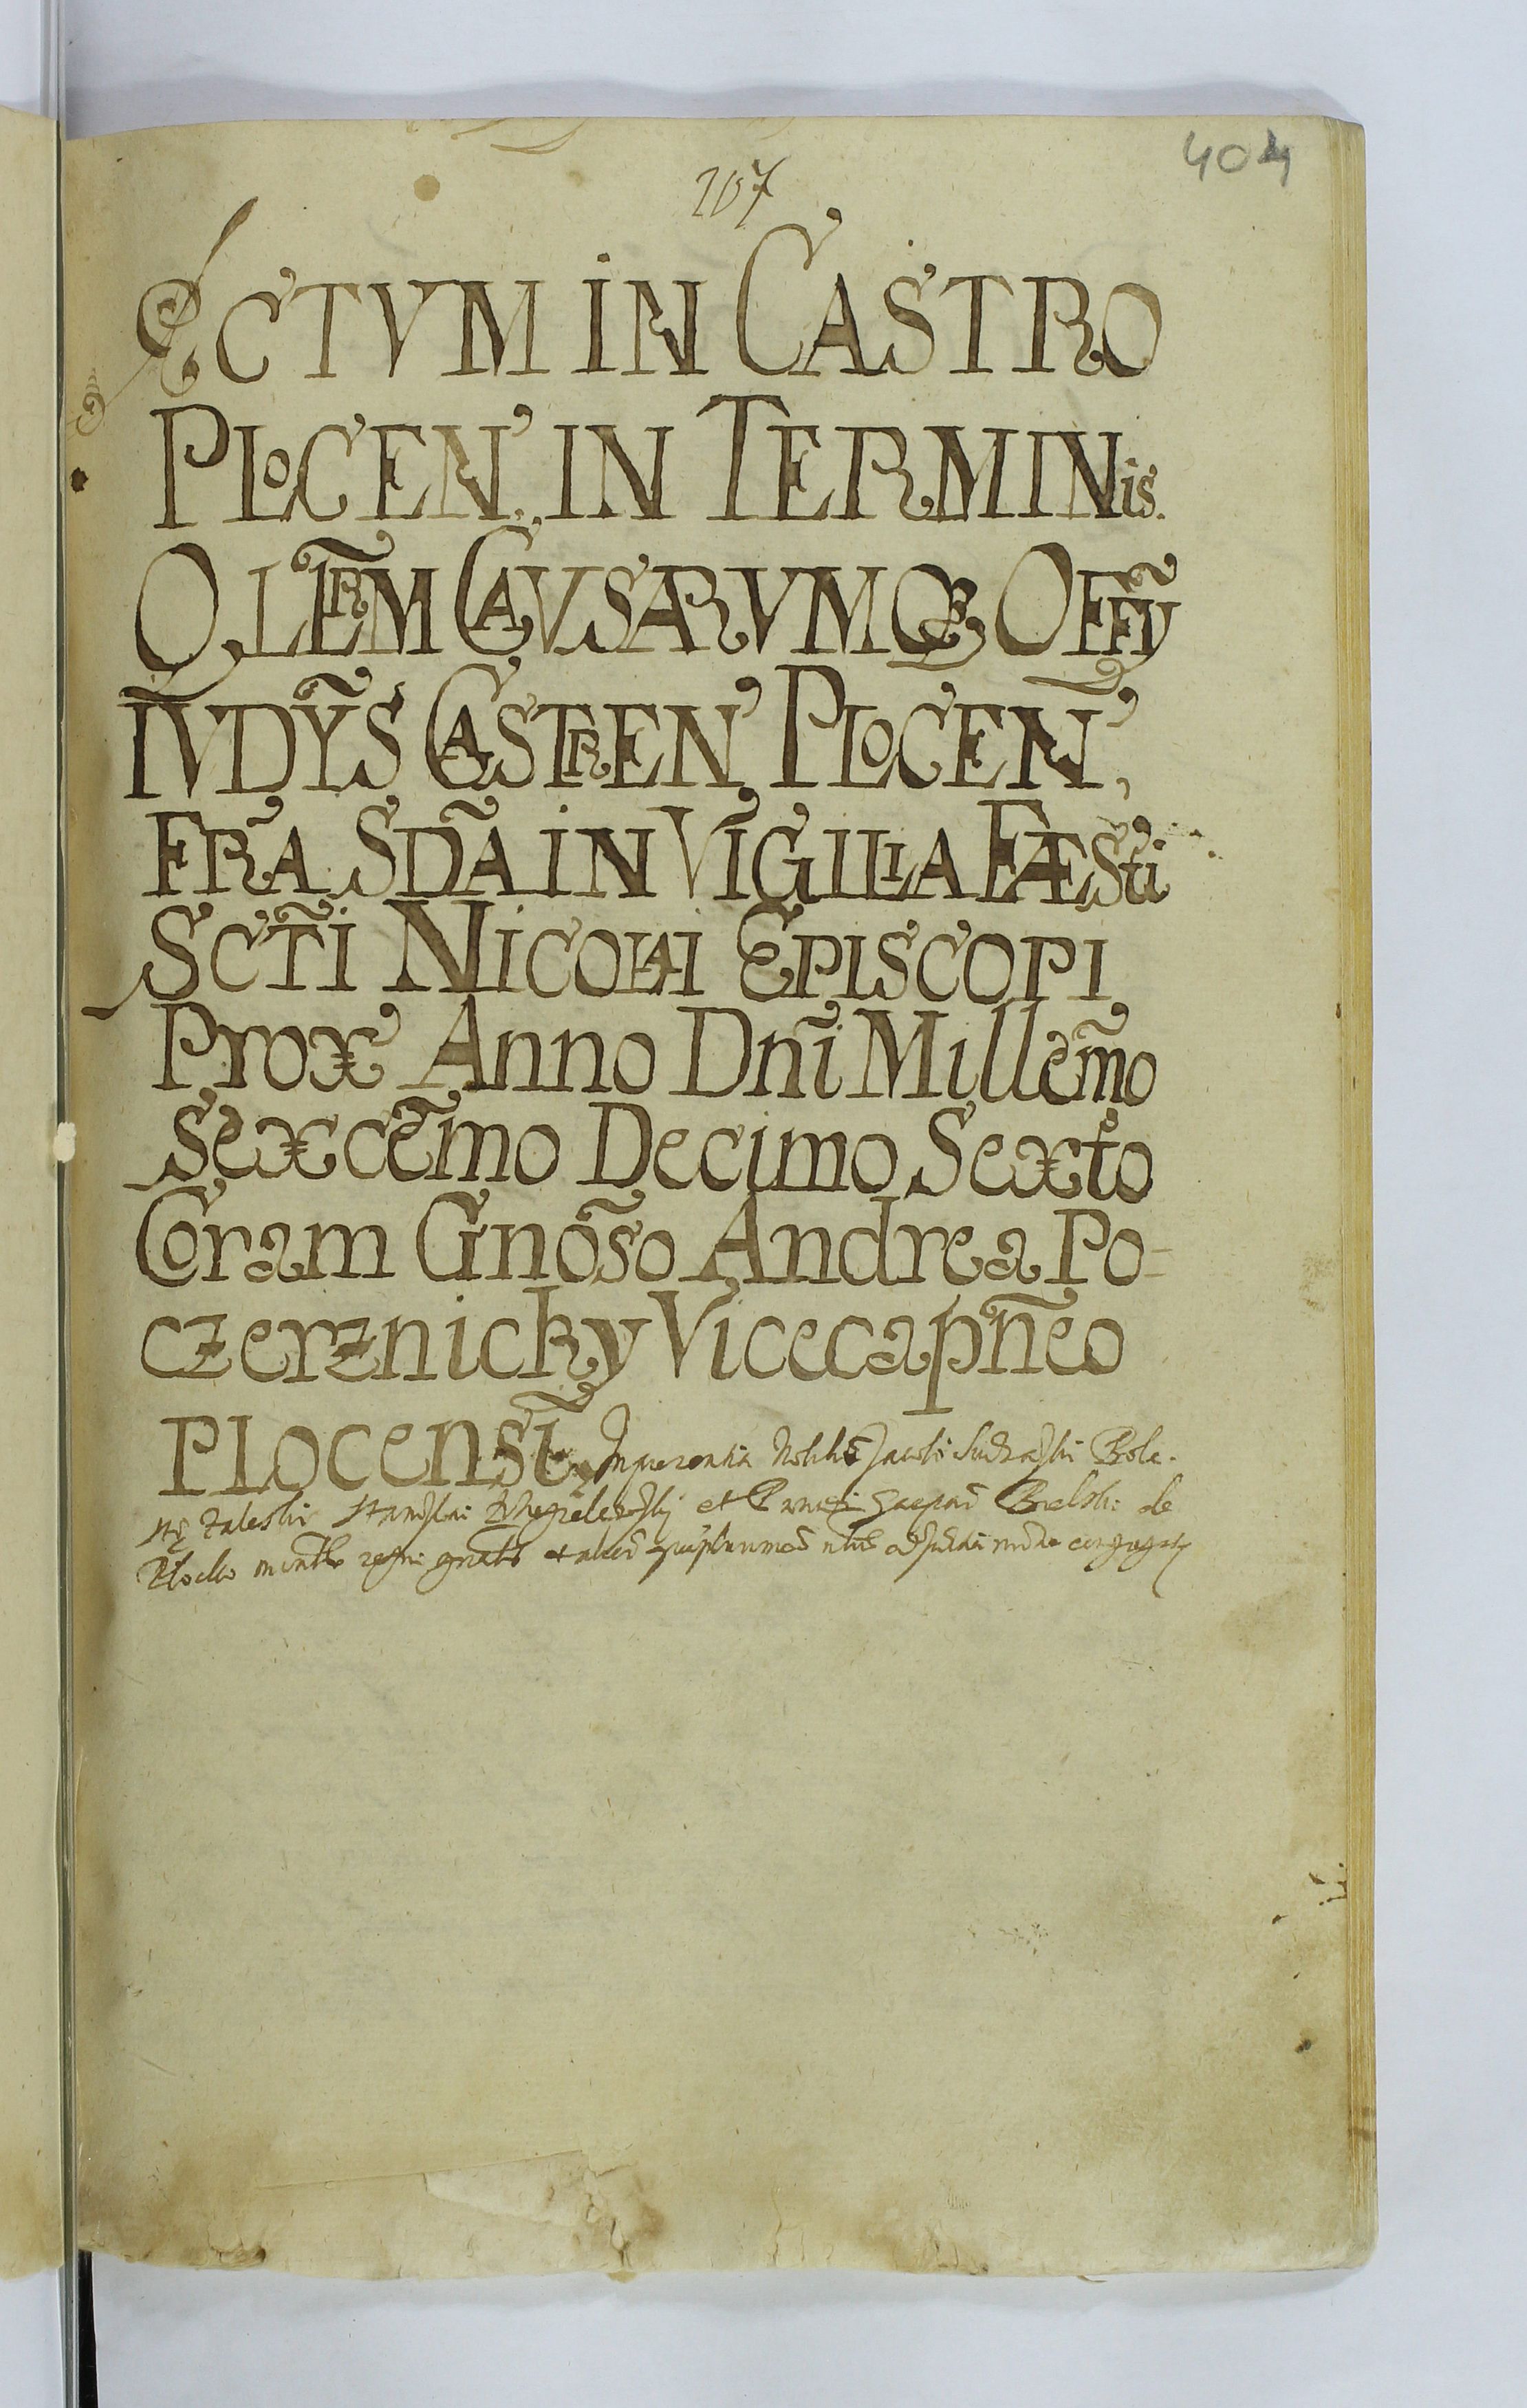 404
107
ACTVM IN CASTRO
PLOCEN, IN TERMINis.
QLERM̃ CAVSARVMQ3 OFFỸ
IVDỸS CASTREN, PLOCEN,
FRÃ SDÃ IN VIGILIA FÆSti
SCTI̅ NICOLAI EPISCOPI
Prox Anno Dnĩ Millem̃o
Sexcem̃o Decimo Sexto
Coram Gnõso Andrea Po-
czerznicky Vicecapñeo
Plocensĩ, In presentia Nobiliũ Jacobi Bole.
Zaleski Stanislai et Gaspari Bielski de